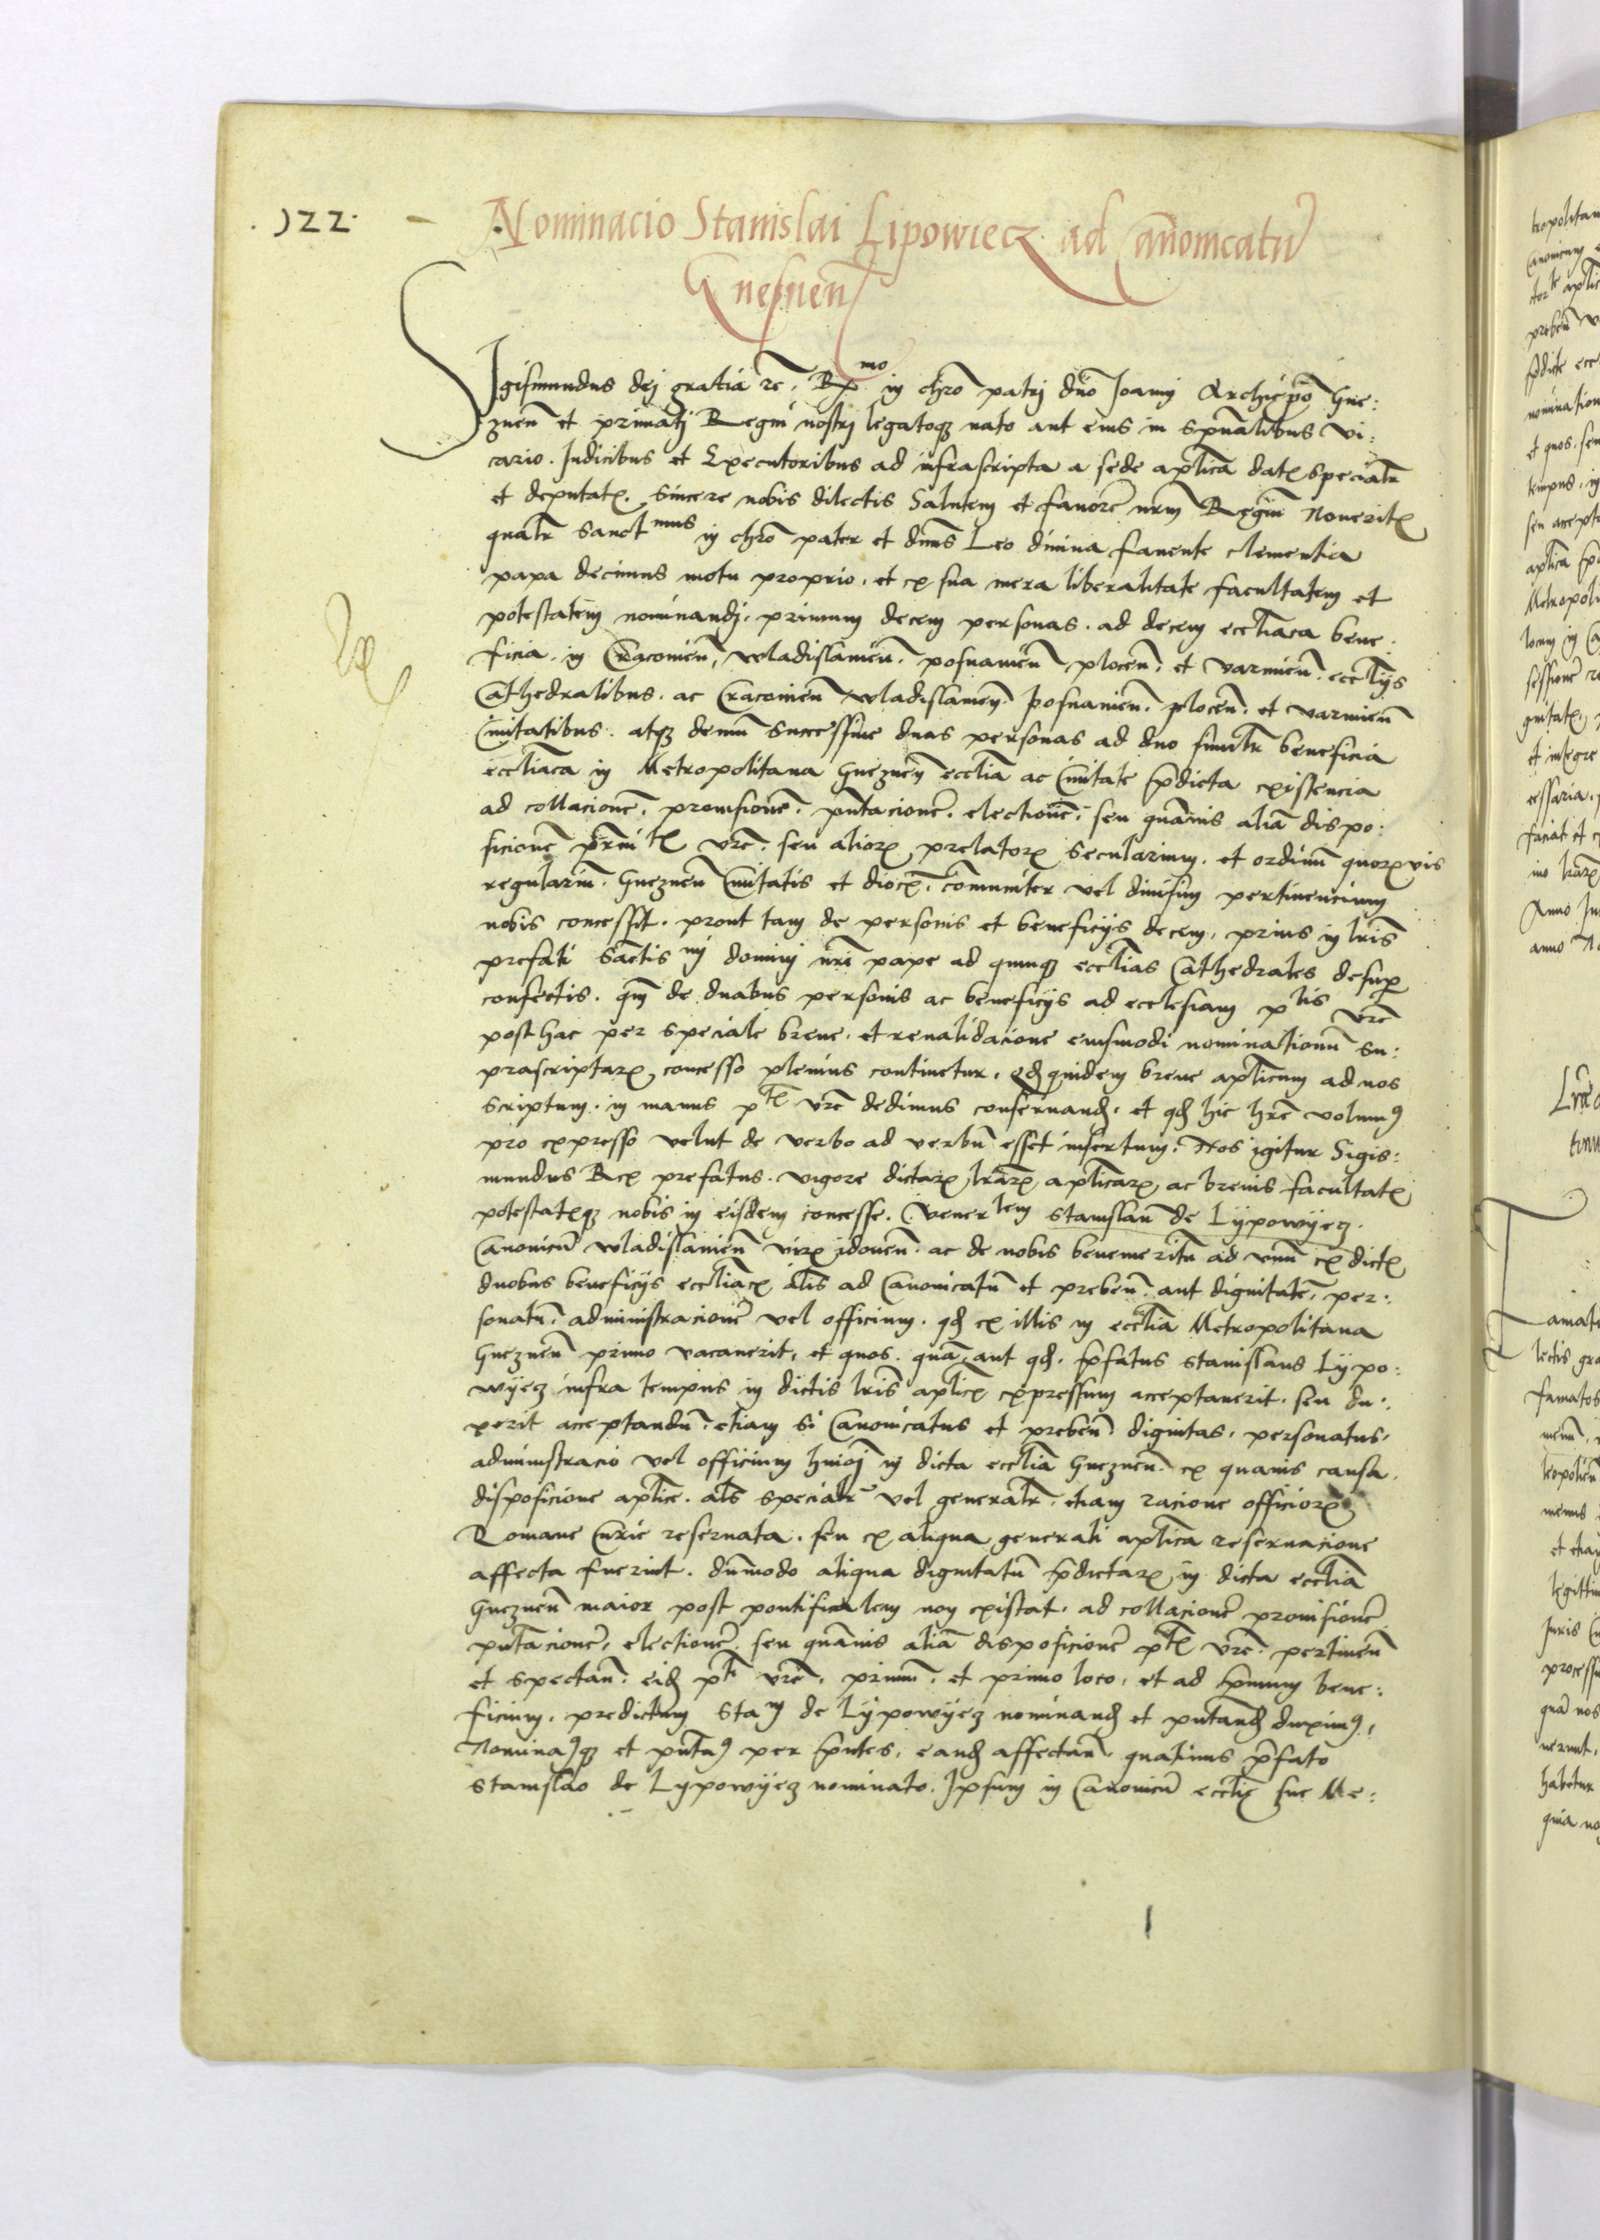 122.
Nominacio Stanislai Lipowiecz ad Canonicatū
Gnesnen̄
Sigismundus dej gratia rc̄. Rx̄mo in chrō patrj dnō Joannj Archiepō Gne:
znen̄ et primatj Regni nostrj legatoqꝫ nato aut eius in spūalibus vi:
cario. Judicibus et Executoribus ad infrascripta a sede aplīca datꝭ specialr̄
et deputatꝭ. Sincere nobis dilectis Salutem et favorē nrm̄ Regiū Noueritꝭ
qualr̄ Sanctmus in chrō pater et dnūs Leo diuina fauente clementia
papa decimus motu proprio. et ex sua mera liberalitate facultatem et
potestatem nominandj. primum decem personas. ad decem eccliāca bene:
ficia. in Cracouien̄, Wladislauien̄. posnanien̄ plocen̄. et Varmien̄. ecclījs
Cathedralibus. ac Cracouien̄ Wladislauien̄. Posnanien̄. plocen̄. et Varmien̄
Ciuitatibus. atqꝫ demū successiue duas personas ad duo similr̄ beneficia
eccliāca in Metropolitana Gneznen̄ eccliā ac Ciuitate p̄dicta existencia
ad collacionē. prouisionē. pn̄tacionē. electionē. seu quāuis aliā dispo:
sicionē pr̄nitꝭ vrē. seu aliorꝝ prelatorꝝ Secularium. et ordinū quorꝝuis
regulariū. Gneznen̄ Ciuitatis et diocꝭ. com̄uniter vel diuisim pertinencium
nobis concessit. prout tam de personis et beneficijs decem, prius in lrīs
prefati Sāctismi dominj nrī pape ad quinqꝫ ecclīas Cathedrales desuꝑ
confectis. qm̄ de duabus personis ac beneficijs ad ecclesiam ptis vrē
posthac per speciale breue. et reualidacione eiusmodi nominationū su:
prascriptarꝝ, concesso plenius continetur. Qd̄ quidem breue aplīcum ad nos
scriptum. in manus ptꝭ vrē dedimus conseruand̄. et qd̄ hic hrē volumꝰ
pro expresso velut de verbo ad verbū esset insertum. Nos igitur Sigis:
mundus Rex prefatus. vigore dictarꝝ lrārꝝ aplīcarꝝ, ac breuis facultatꝭ
potestatꝭqꝫ nobis in eisdem concesse. Venerlem Stanislaū de Lypowyecz.
Canonicū Wladislauien̄ virꝝ idoneū. ac de nobis benemeritū ad vnū ex dictꝭ
duobus beneficijs eccliācꝭ ālīs ad Canonicatū et preben̄. aut dignitatē, per:
sonatū. administracionē vel officium. qd̄ ex illis in eccliā Metropolitana
Gneznen̄ primo vacauerit, et quos. quā, aut qd̄. p̄fatus Stanislaus Lypo:
wyecz infra tempus in dictis lrīs aplīcꝭ expressum acceptauerit. seu du:
xerit acceptandū. etiam si Canonicatus et preben̄ dignitas. personatus,
administracio vel officium hmōj in dicta eccliā Gneznen̄. ex quauis causa.
disposicione aplīce. als̄ specialr̄ vel generalr̄. etiam racione officiorꝝ
Romane Curie reseruata. seu ex aliqua generali aplīca reseruacione
affecta fuerint. dūmodo aliqua dignitatū p̄dictarꝝ, in dicta eccliā
Gneznen̄ maior post pontificalem non existat. ad collacionē prouisionē
pn̄tacionē, electionē. seu quāuis aliā disposicionē ptꝭ vrē. pertinen̄
et spectan̄. eid̄ pti vrē. primū. et primo loco, et ad p̄mum bene:
ficium. predictum Stam de Lypowyecz nominand̄ et pn̄tand̄ duximꝰ,
Nominaꝰqꝫ et pn̄taꝰ per pn̄tes. eand̄ affectan̄ quatinus p̄fato
Stanislao de Lypowyecz nominato. Ipsum in Canonicū ecclīe sue Me: